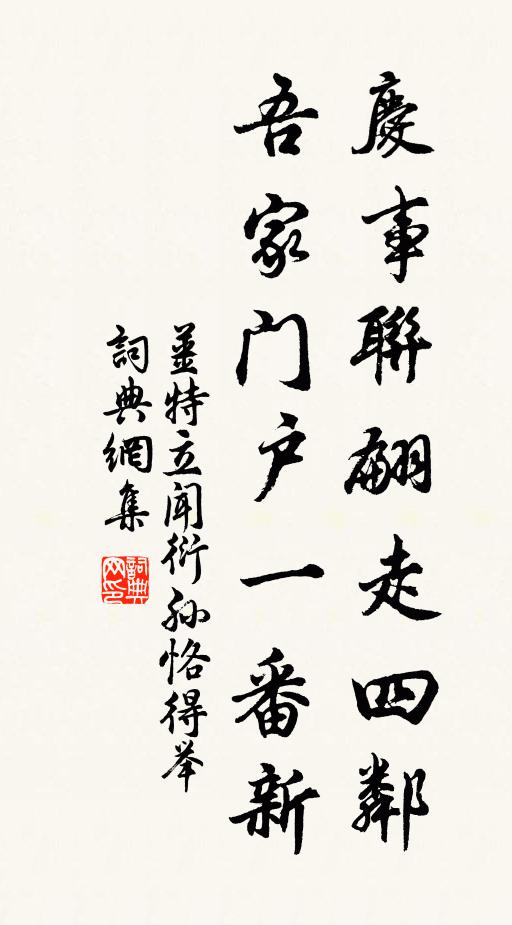 慶事聯翩走四鄰
吾家門户一番新
姜特立闻衍孙恪得举
詞典網集
詞典网印